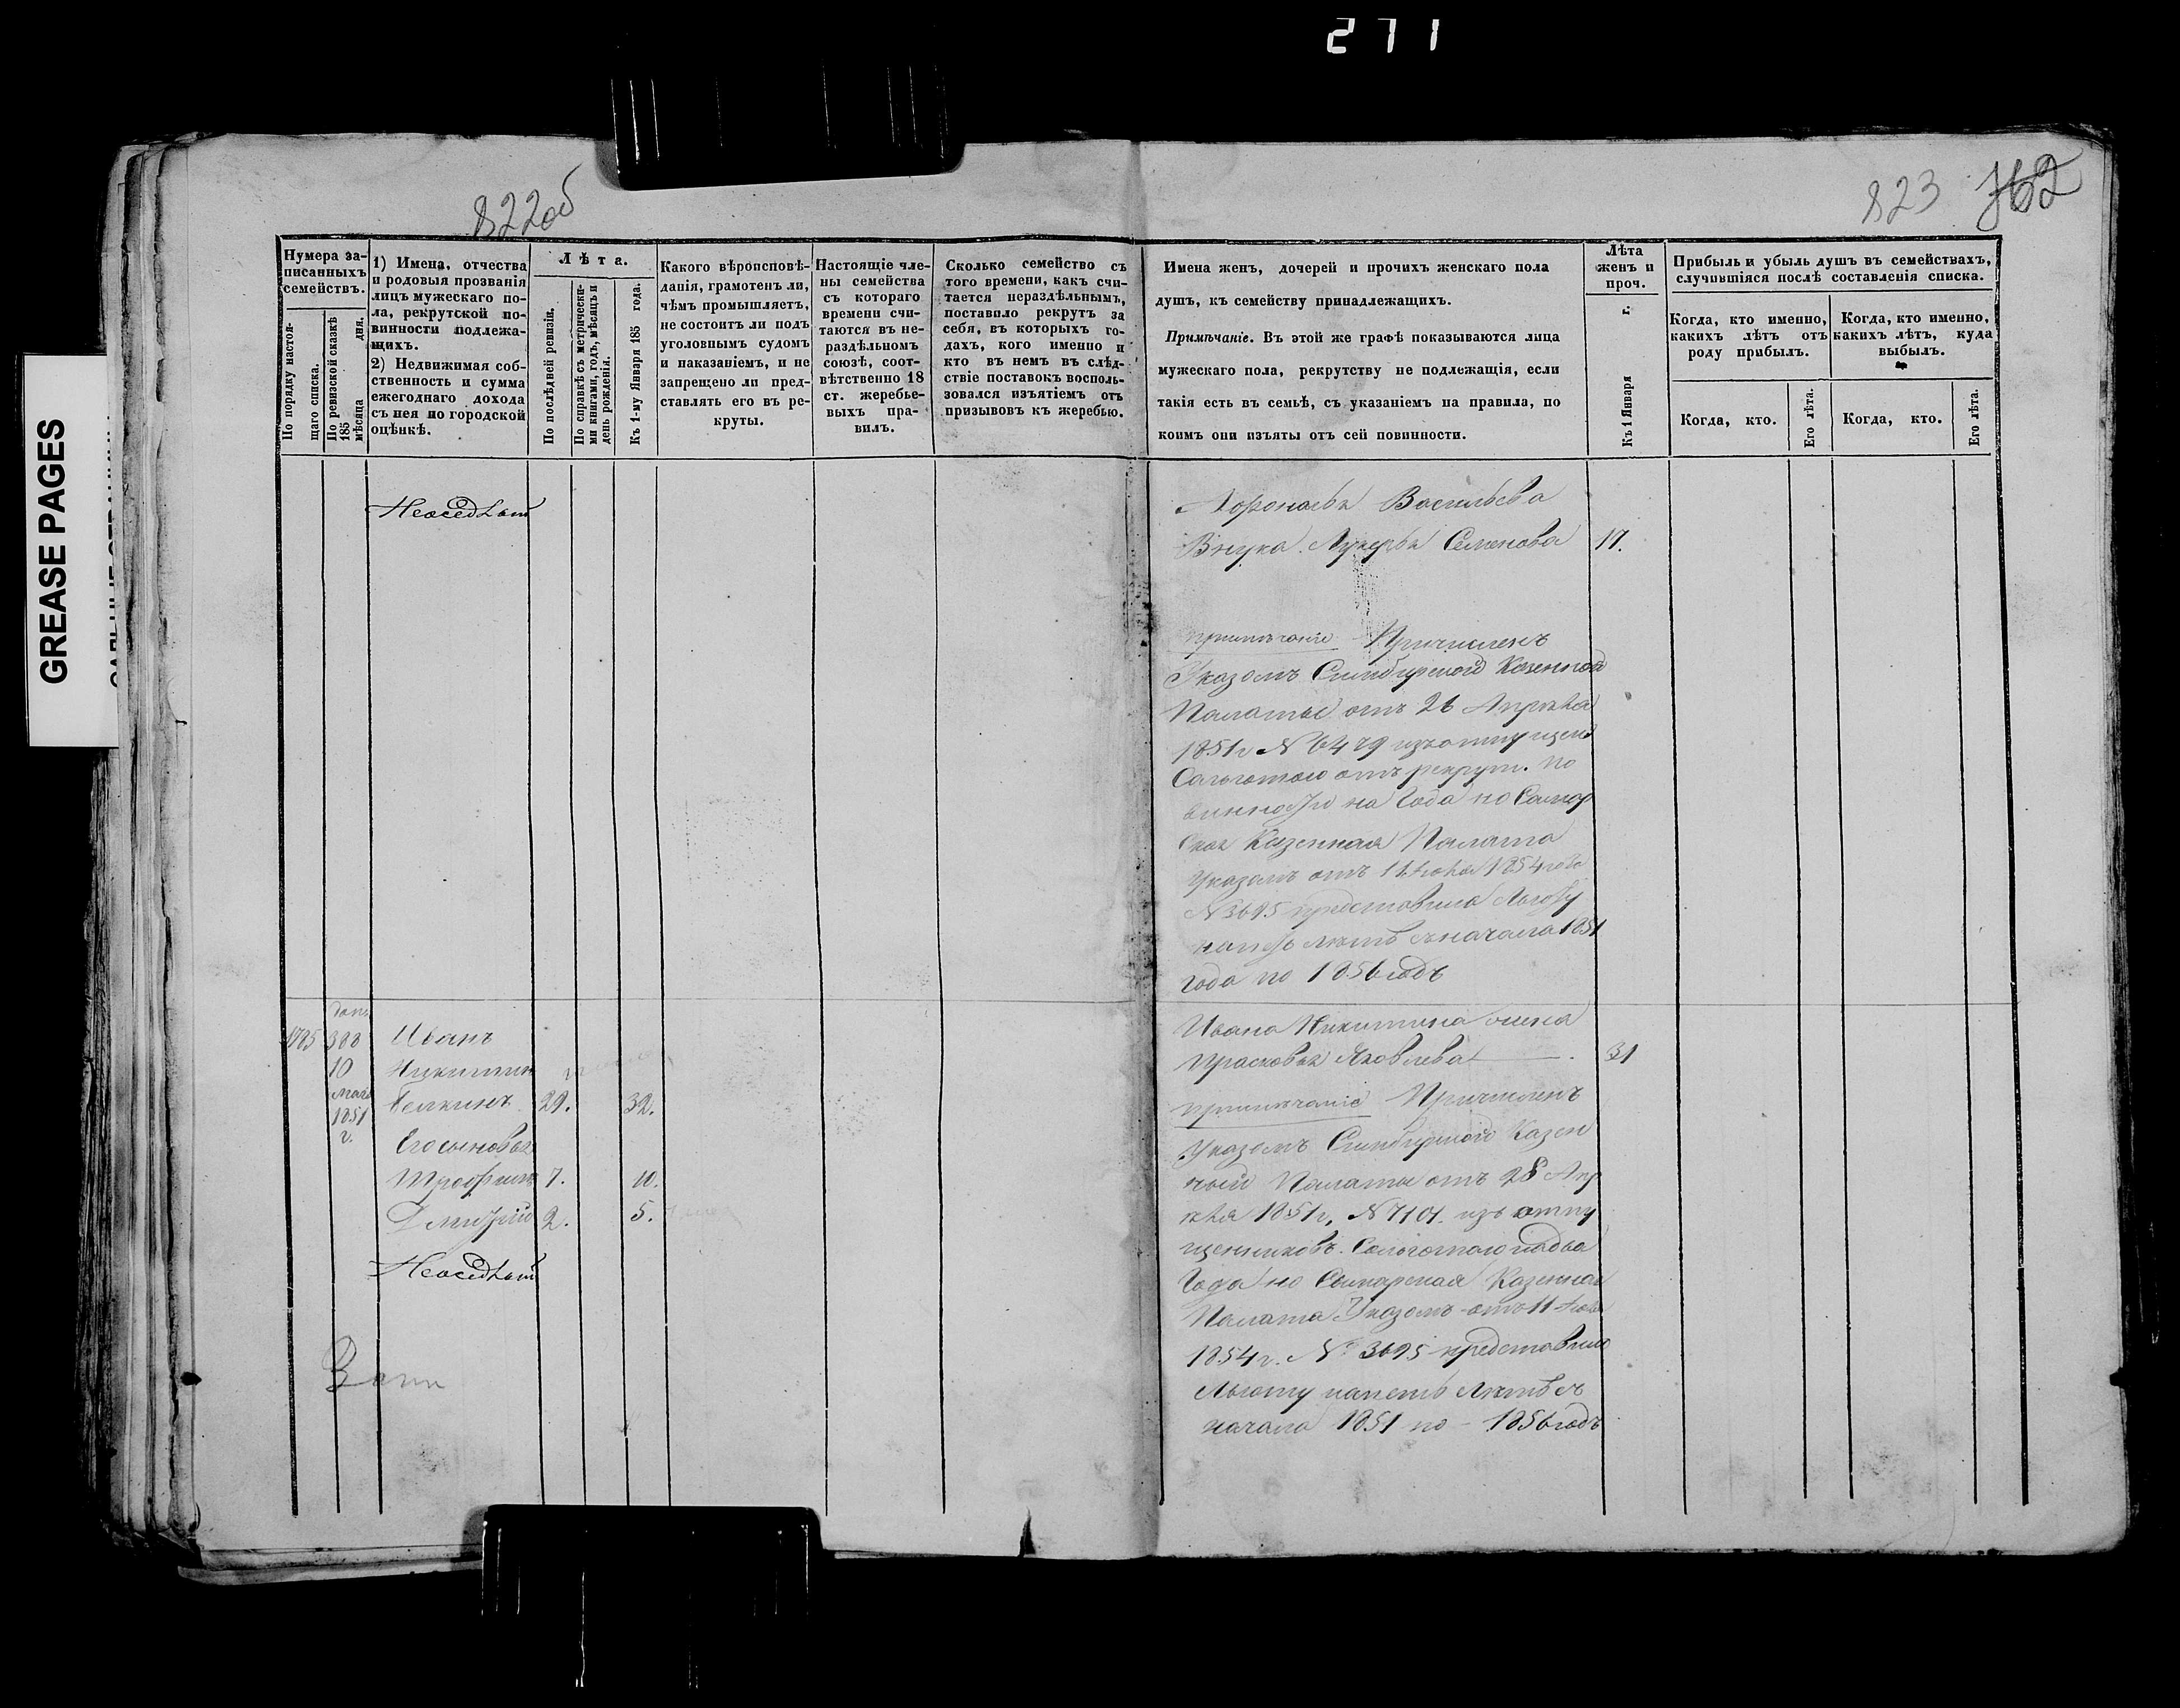 271
GREASE PAGES
822об
823 762
Нумера записанныхъ семействъ.
По порядку настоящаго списка.
По ревизской сказкѣ 185 мѣсяца дня.
1) Имена, отчества
и родовыя прозванія
лицъ мужескаго по-
ла, рекрутской по-
винности подлежа-
щихъ.
2) Недвижимая соб-
ственность и сумма
ежегоднаго дохода
съ нея по городской
оцѣнкѣ.
Лѣта.
По послѣдней ревизіи.
По справкѣ съ метрически-
ми книгами, годъ, мѣсяцъ и
день рожденія.
Къ 1-му Января 185 года.
Какого вѣроисповѣ-
данія, грамотенъ ли,
чѣмъ промышляетъ,
не состоитъ ли подъ
уголовнымъ судомъ
и наказаніемъ, и не
запрещено ли пред-
ставлять его въ ре-
круты.
Настоящіе чле-
ны семейства
съ котораго
времени счи-
таются въ не-
раздѣльномъ
союзѣ, соот-
вѣтственно 18
ст. жеребье-
выхъ пра-
вилъ.
Сколько семейство съ
того времени, какъ счи-
тается нераздѣльнымъ,
поставило рекрутъ за
себя, въ которыхъ го-
дахъ, кого именно и
кто въ немъ въ слѣд-
ствіе поставокъ восполь-
зовался изъятіемъ отъ
призывовъ къ жеребью.
Имена женъ, дочерей и прочихъ женскаго пола
душъ, къ семейству принадлежащихъ.
Примѣчаніе. Въ этой же графѣ показываются лица
мужескаго пола, рекрутству не подлежащія, если
такія есть въ семьѣ, съ указаніемъ на правила, по
коимъ они изъяты отъ сей повинности.
Лѣта
женъ и
проч.
Къ 1 Января г.
Прибыль и убыль душъ въ семействахъ,
случившіяся послѣ составленія списка.
Когда, кто именно,
какихъ лѣтъ отъ
роду прибылъ.
Когда, кто именно,
какихъ лѣтъ, куда
выбылъ.
Когда, кто.
Его лѣта.
Когда, кто.
Его лѣта.
Неосѣдлый
Васильева
Внука Лукерья Семенова 17.
примѣчаніе Причисленъ
Указомъ Симбирской Казенной
Палаты отъ 26 Апрѣля
1851 г N 6479
Сальготою отъ рекрут. по
винности на года но Самар
ская Казенная Палата
Указомъ отъ 11 Іюня 1854 года
N 3695 представила Льготу
на лѣтъ съ начала 1851
года по 1856 годъ
1785 388 Иванъ
10 Никитинъ
мая 29. 32.
1851
г.
Его сыновья
Трофимъ 7. 10.
Дмитрій 2. 5.
Неосѣдлый
Ивана Никитина жена
Прасковья Яковлева 31
примѣчаніе Причисленъ
Указомъ Симбирской Казен
ной Палаты отъ 28 Апр
ѣля 1851 г, N 7101. изъ отпу
щенниковъ. Сальготою на два
Года но Самарская Казенная
Палата Указомъ отъ 11 Іюня
1854 г. № 3695 представила
Льготу на пять лѣтъ съ
начала 1851 по 1856 годъ